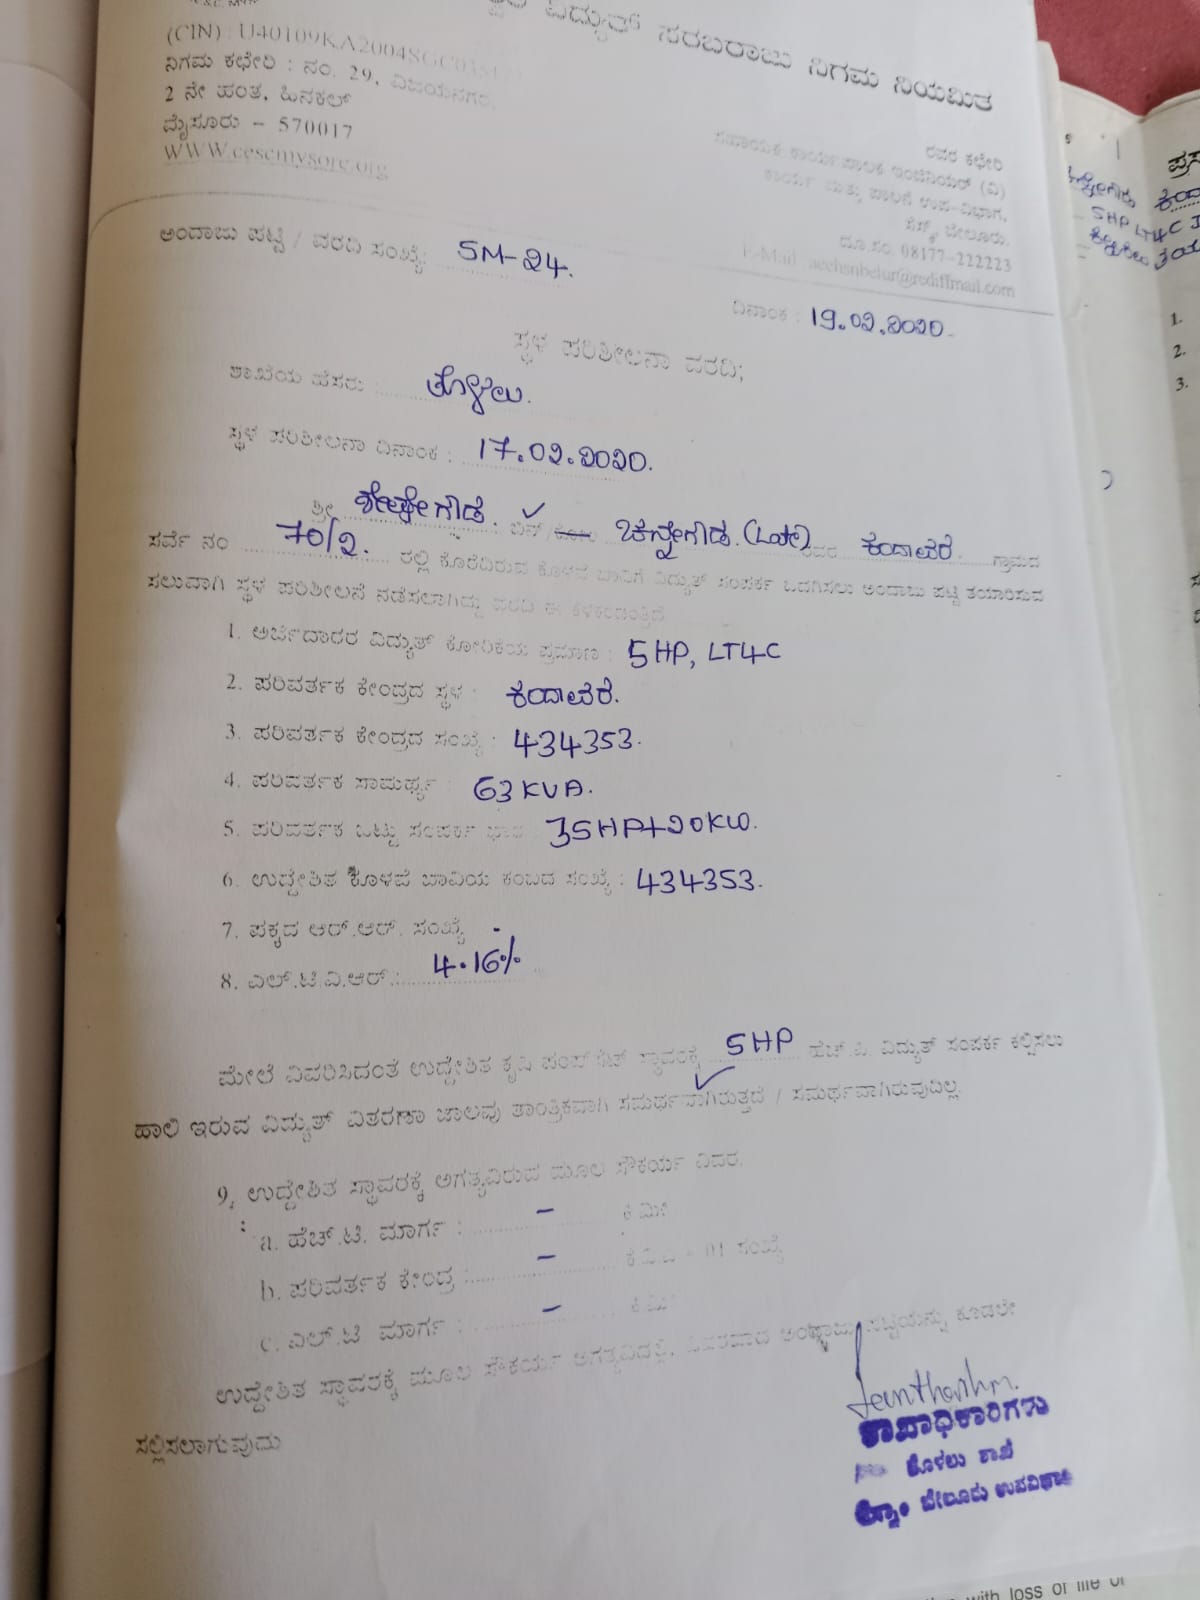 ವಿದ್ಯುತ್ ಸರಬರಾಜು ನಿಗಮ ನಿಯಮಿತ
(CIN) : U40109KA2004SGC03
ನಿಗಮ ಕಛೇರಿ : ನಂ. 29, ವಿಜಯನಗರ,
2 ನೇ ಹಂತ, ಹಿನಕಲ್
ಮೈಸೂರು - 570017
WWW.cescmysore.org
ರವರ ಕಛೇರಿ
ಸಹಾಯಕ ಕಾರ್ಯಪಾಲಕ ಇಂಜಿನಿಯರ್ (ವಿ)
ಕಾರ್ಯ ಮತ್ತು ಪಾಲನೆ ಉಪ-ವಿಭಾಗ,
ಸೆಸ್ಕ್, ಬೇಲೂರು.
ದೂ.ಸಂ. 08177-222223
E-Mail : aeehsnbelur@rediffmail.com
ಅಂದಾಜು ಪಟ್ಟಿ / ವರದಿ ಸಂಖ್ಯೆ: SM-24.
ದಿನಾಂಕ : 19.02.2020.
ಸ್ಥಳ ಪರಿಶೀಲನಾ ವರದಿ;
ಶಾಖೆಯ ಹೆಸರು : ತೊಳಲು.
ಸ್ಥಳ ಪರಿಶೀಲನಾ ದಿನಾಂಕ : 17.02.2020.
ಶ್ರೀ ಶೇಷೇಗೌಡ. ಬಿನ್ / ಕೋಂ ಚನ್ನೇಗೌಡ.(Late) ರವರ ಕೆಂದಾವರೆ ಗ್ರಾಮದ
ಸರ್ವೆ ನಂ 70/2. ರಲ್ಲಿ ಕೊರೆದಿರುವ ಕೊಳವೆ ಬಾವಿಗೆ ವಿದ್ಯುತ್ ಸಂಪರ್ಕ ಒದಗಿಸಲು ಅಂದಾಜು ಪಟ್ಟಿ ತಯಾರಿಸುವ
ಸಲುವಾಗಿ ಸ್ಥಳ ಪರಿಶೀಲನೆ ನಡೆಸಲಾಗಿದ್ದು ವರದಿ ಈ ಕೆಳಕಂಡಂತ್ತಿದೆ
1. ಅರ್ಜಿದಾರರ ವಿದ್ಯುತ್ ಕೋರಿಕೆಯ ಪ್ರಮಾಣ : 5HP, LT4C
2. ಪರಿವರ್ತಕ ಕೇಂದ್ರದ ಸ್ಥಳ : ಕೆಂದಾವರೆ.
3. ಪರಿವರ್ತಕ ಕೇಂದ್ರದ ಸಂಖ್ಯೆ : 434353.
4. ಪರಿವರ್ತಕ ಸಾಮರ್ಥ್ಯ : 63KVA.
5. ಪರಿವರ್ತಕ ಒಟ್ಟು ಸಂಪರ್ಕ ಭಾರ : 35HP+20KW.
6. ಉದ್ದೇಶಿತ ಕೊಳವೆ ಬಾವಿಯ ಕಂಬದ ಸಂಖ್ಯೆ : 434353.
7. ಪಕ್ಕದ ಆರ್.ಆರ್. ಸಂಖ್ಯೆ -
8. ಎಲ್.ಟಿ.ವಿ.ಆರ್.: 4.16%
ಮೇಲೆ ವಿವರಿಸಿದಂತೆ ಉದ್ದೇಶಿತ ಕೃಷಿ ಪಂಪ್‌ಸೆಟ್ ಸ್ಥಾವರಕ್ಕೆ 5HP ಹೆಚ್.ಪಿ. ವಿದ್ಯುತ್ ಸಂಪರ್ಕ ಕಲ್ಪಿಸಲು
ಹಾಲಿ ಇರುವ ವಿದ್ಯುತ್ ವಿತರಣಾ ಜಾಲವು ತಾಂತ್ರಿಕವಾಗಿ ಸಮರ್ಥವಾಗಿರುತ್ತದೆ / ಸಮರ್ಥವಾಗಿರುವುದಿಲ್ಲ.
9, ಉದ್ದೇಶಿತ ಸ್ಥಾವರಕ್ಕೆ ಅಗತ್ಯವಿರುವ ಮೂಲ ಸೌಕರ್ಯ ವಿವರ.
a. ಹೆಚ್.ಟಿ. ಮಾರ್ಗ : - ಕಿ.ಮೀ
b. ಪರಿವರ್ತಕ ಕೇಂದ್ರ : - ಕೆ.ವಿ.ಎ - 01 ಸಂಖ್ಯೆ
c. ಎಲ್.ಟಿ ಮಾರ್ಗ : - ಕಿ.ಮೀ
ಉದ್ದೇಶಿತ ಸ್ಥಾವರಕ್ಕೆ ಮೂಲ ಸೌಕರ್ಯ ಅಗತ್ಯವಿದಲ್ಲಿ, ವಿವರವಾದ ಅಂದಾಜು ಪಟ್ಟಿಯನ್ನು ಕೂಡಲೇ
ಸಲ್ಲಿಸಲಾಗುವುದು
ಶಾಖಾಧಿಕಾರಿಗಳು
ತೊಳಲು ಶಾಖೆ
ಬೇಲೂರು ಉಪವಿಭಾಗ
5HP LT4C
1.
2.
3.
with loss of life or